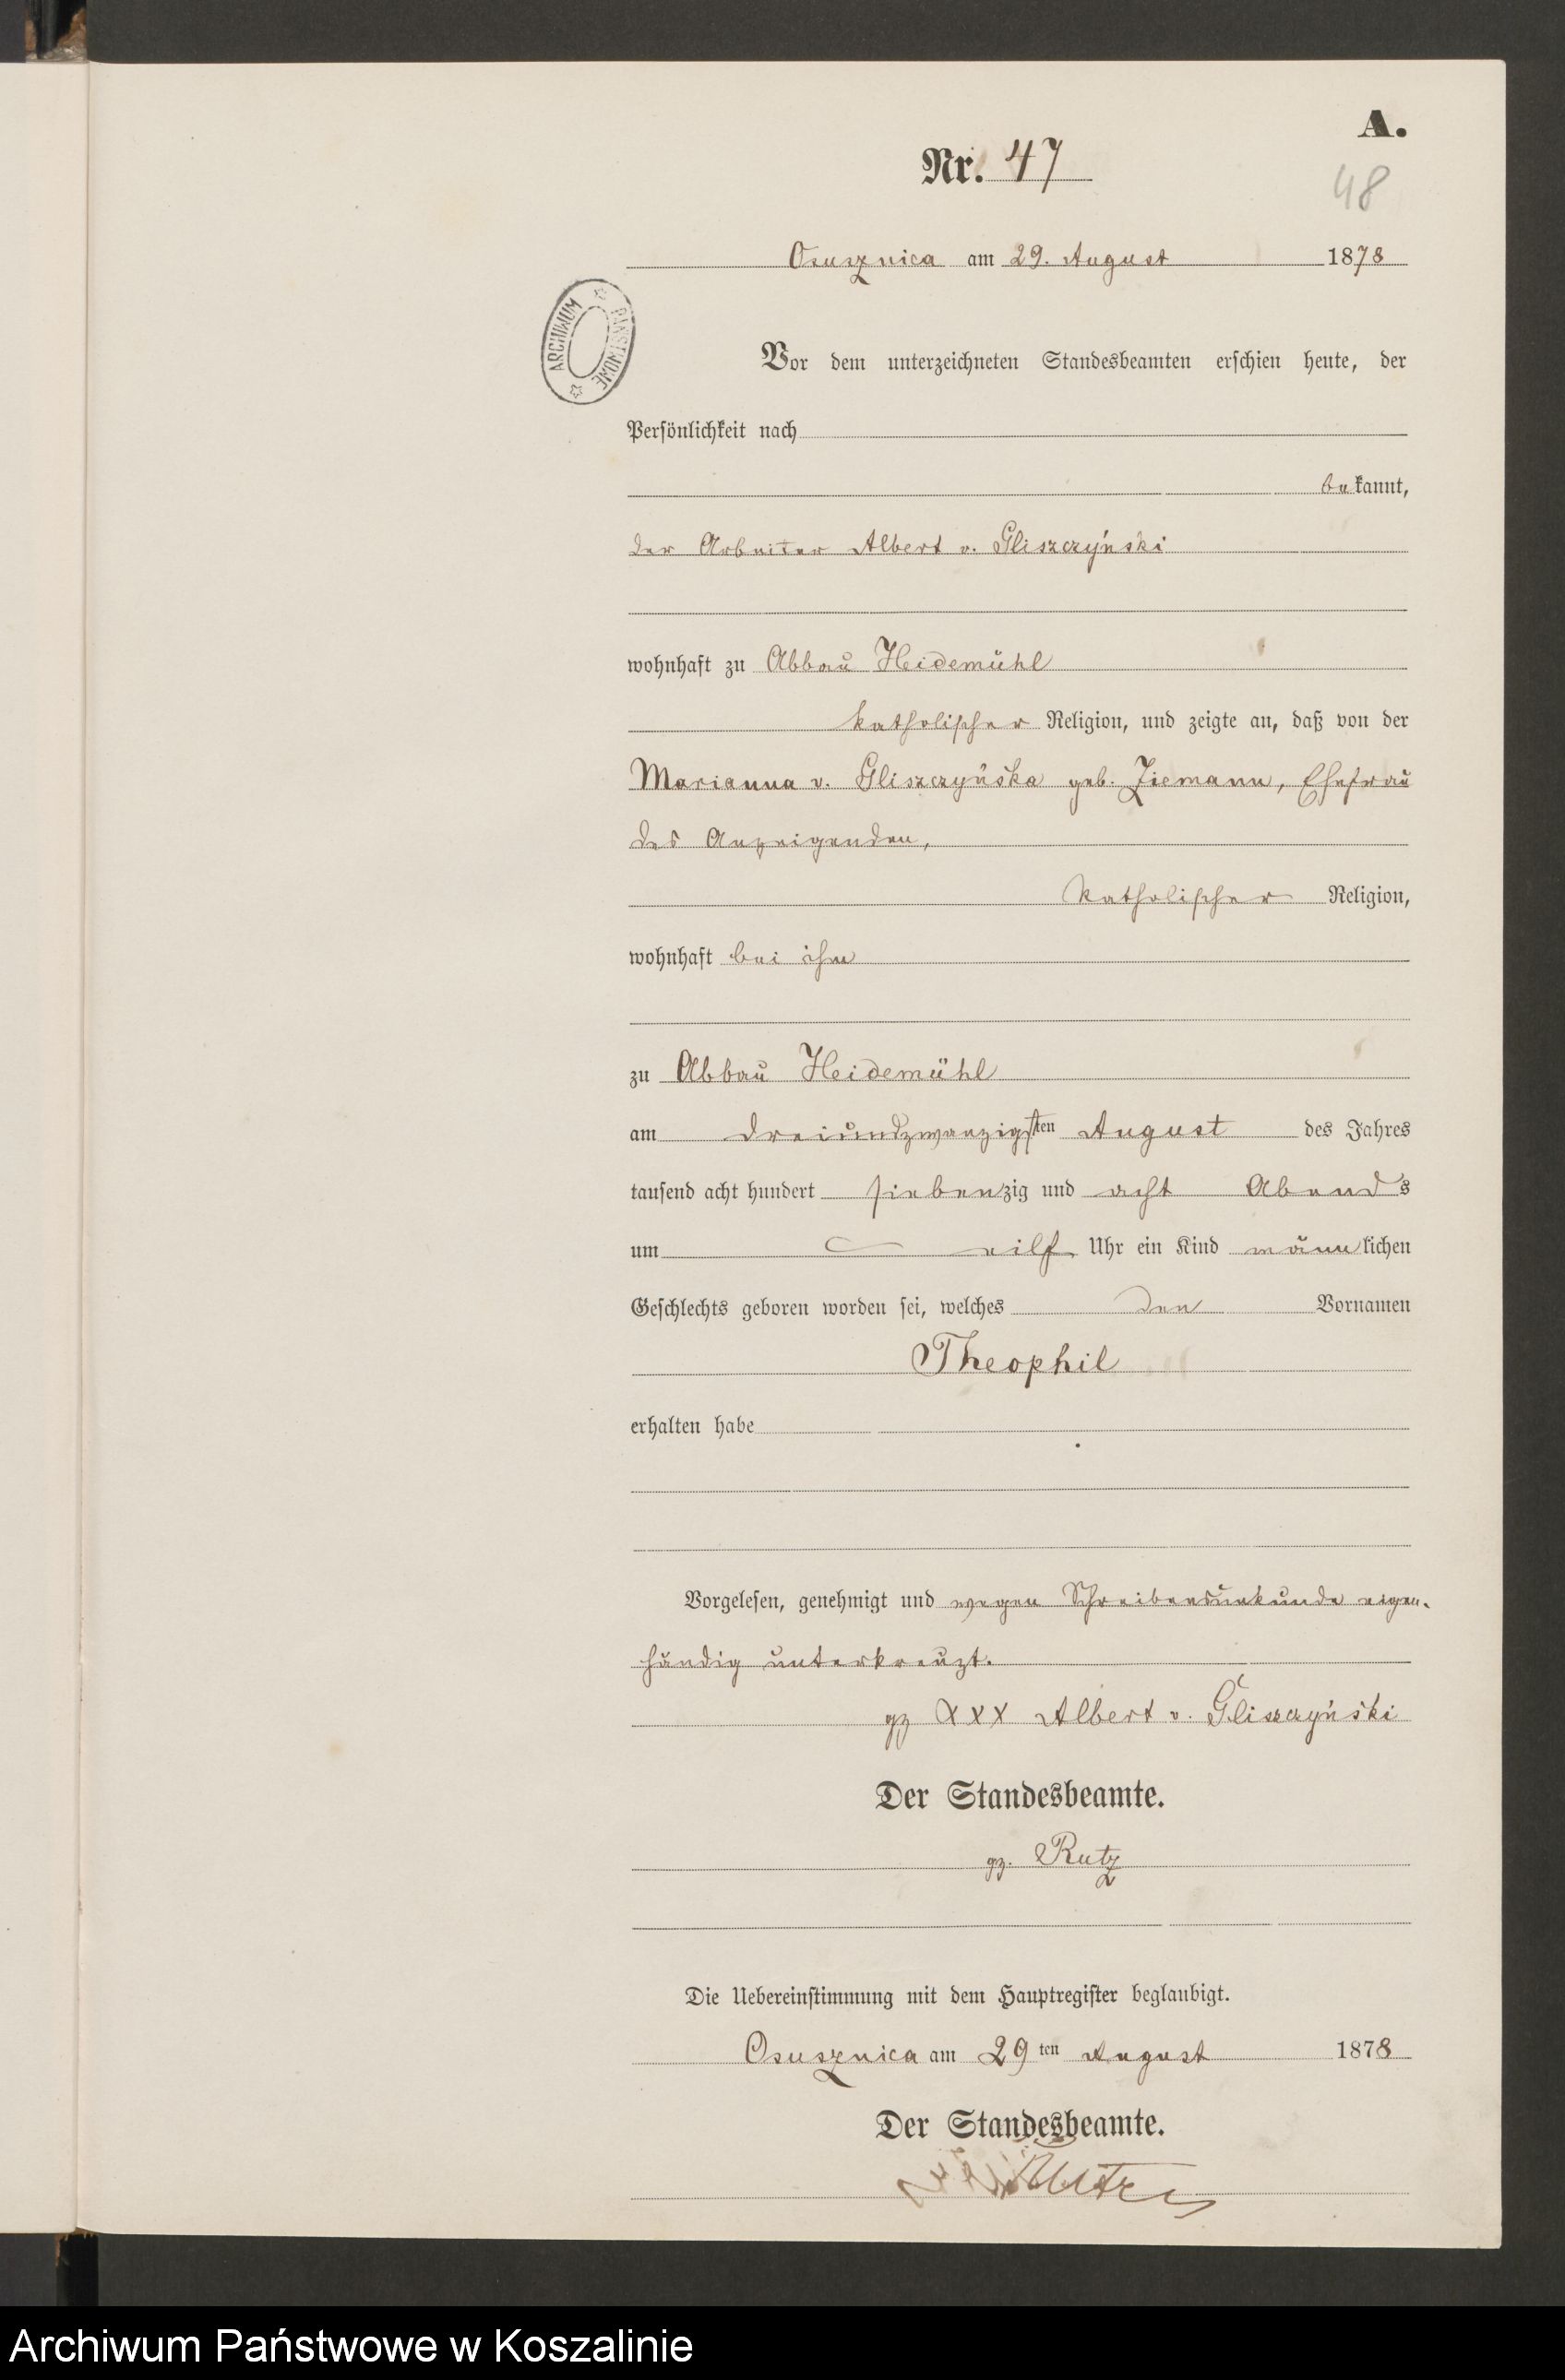 A.
Nr. 47
48
Osusznica am 29. August 1878
ARCHIWUM PAŃSTWOWE
Vor dem unterzeichneten Standesbeamten erschien heute, der
Persönlichkeit nach
bekannt,
der Arbeiter Albert v. Gliszczyński
wohnhaft zu Abbau Heidemühl
katholischer Religion, und zeigte an, daß von der
Marianna v. Gliszczyńska geb. Ziemann, Ehefrau
des Anzeigenden,
katholischer Religion,
wohnhaft bei ihm
zu Abbau Heidemühl
am dreiundzwanzigsten August des Jahres
tausend acht hundert siebenzig und acht Abends
um eilf Uhr ein Kind männlichen
Geschlechts geboren worden sei, welches den Vornamen
Theophil
erhalten habe
Vorgelesen, genehmigt und wegen Schreibensunkunde eigen-
händig unterkreuzt.
gz XXX Albert v. Gliszczyński
Der Standesbeamte.
gz. Rutz
Die Uebereinstimmung mit dem Hauptregister beglaubigt.
Osusznica am 29ten August 1878
Der Standesbeamte.
Rutz
Archiwum Państwowe w Koszalinie